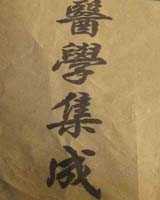 醫學集成